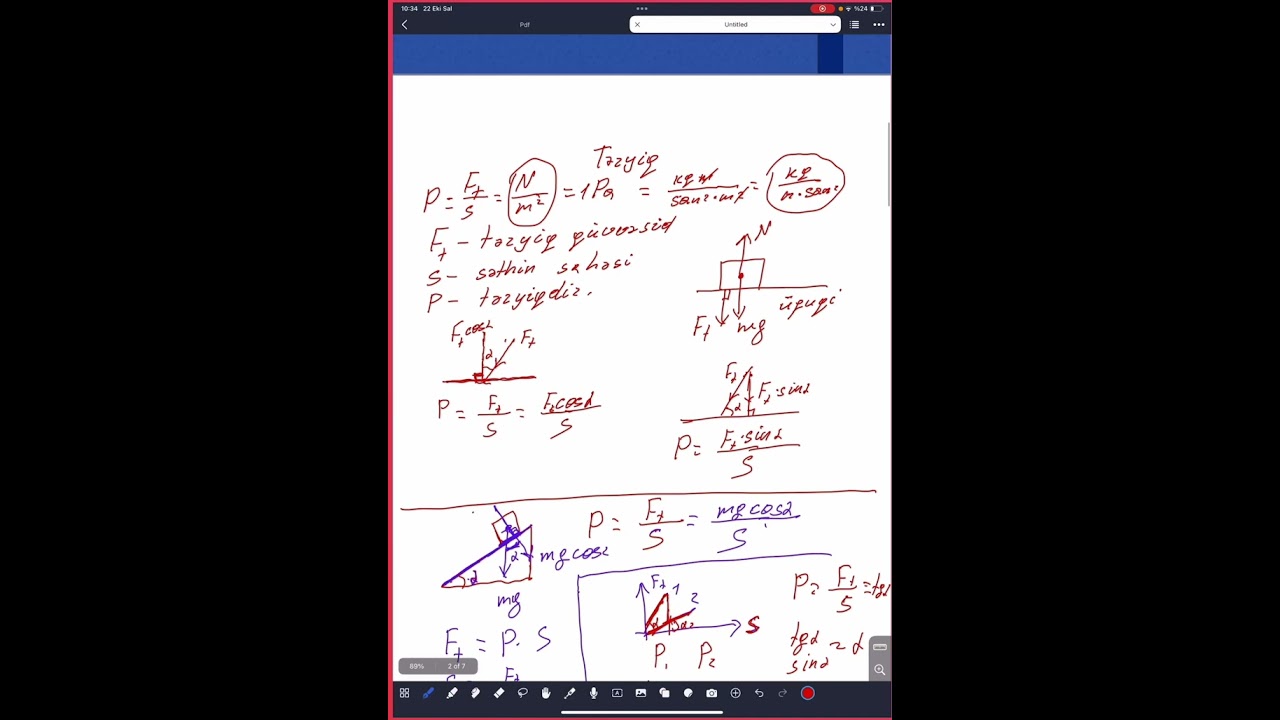 10:34 22 Eki Sal
%24
Pdf
Untitled
Təzyiq
P = F_t/S = N/m² = 1Pa = kq m/san²·m² = kq/m·san²
F_t – təzyiq qüvvəsid
S – səthin sahəsi
P – təzyiqdir.
N
F_t
mg
üfuqi
F_t cosα
α
F_t
P = F_t/S = F_t cosα/S
F_t
α
F_t·sinα
P = F_t·sinα/S
α
α
mg cosα
mg
P = F_t/S = mg cosα/S
F_t
1
2
α₂
S
P₁ P₂
P = F_t/S = tgα
tgα
sinα ≈ α
F_t = P·S
89%
2 of 7